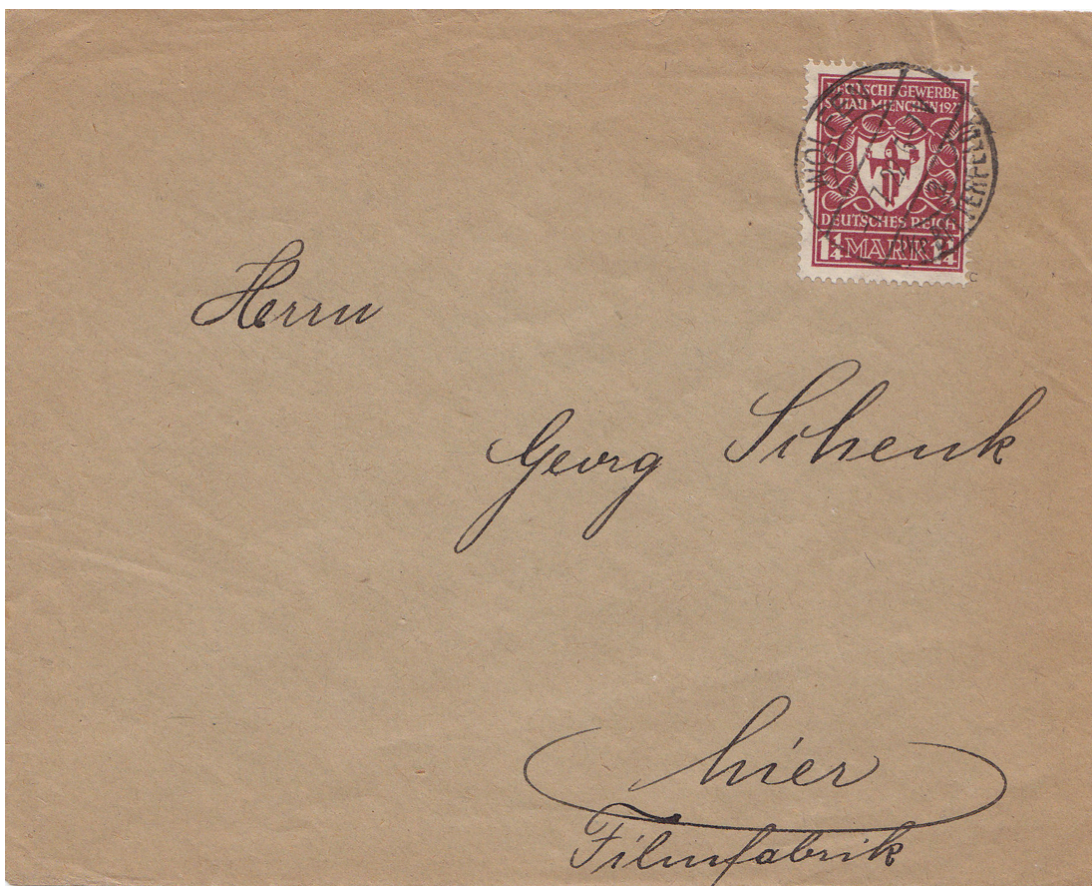 DEUTSCHE GEWERBE
SCHAU MUENCHEN 192
DEUTSCHES REICH
1¼ MARK 1¼
WOLFEN
Herrn
Georg Schenk
hier
Filmfabrik